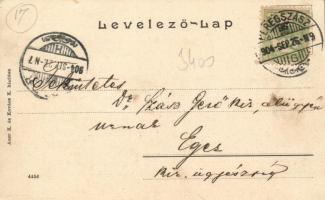 17
Levelező-Lap
BEREGSZÁSZ
904 SEP 26
3400
Tekintetes
Dr. Szász Jenő kir. alügyész
urnak
Eger
Kir. ügyészség
Auer K. és Kovács K. kiadása
4454